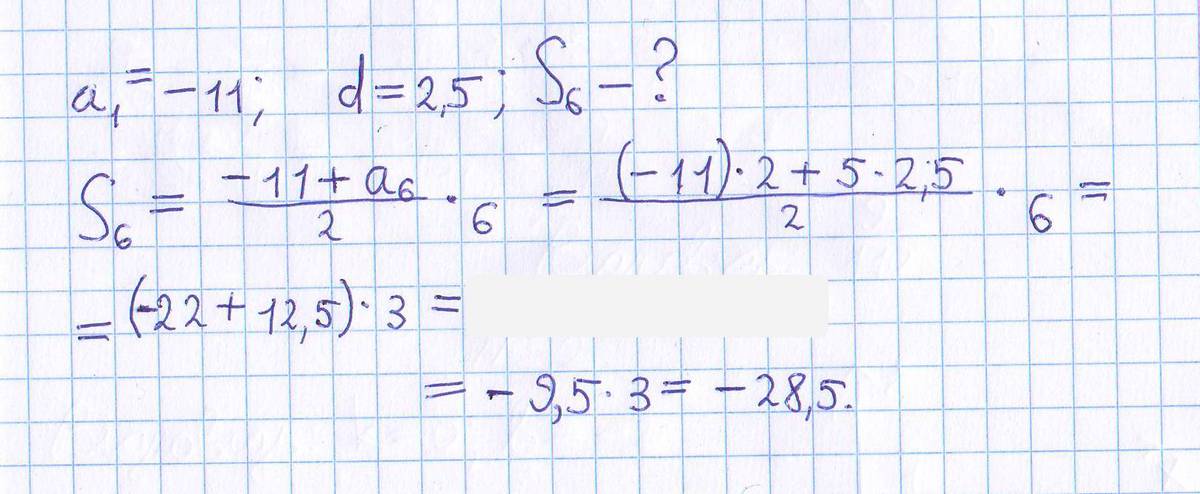 a₁ = -11; d = 2,5; S₆ - ?
S₆ = (-11 + a₆)/2 · 6 = ((-11) · 2 + 5 · 2,5)/2 · 6 =
= (-22 + 12,5) · 3 =
= -9,5 · 3 = -28,5.